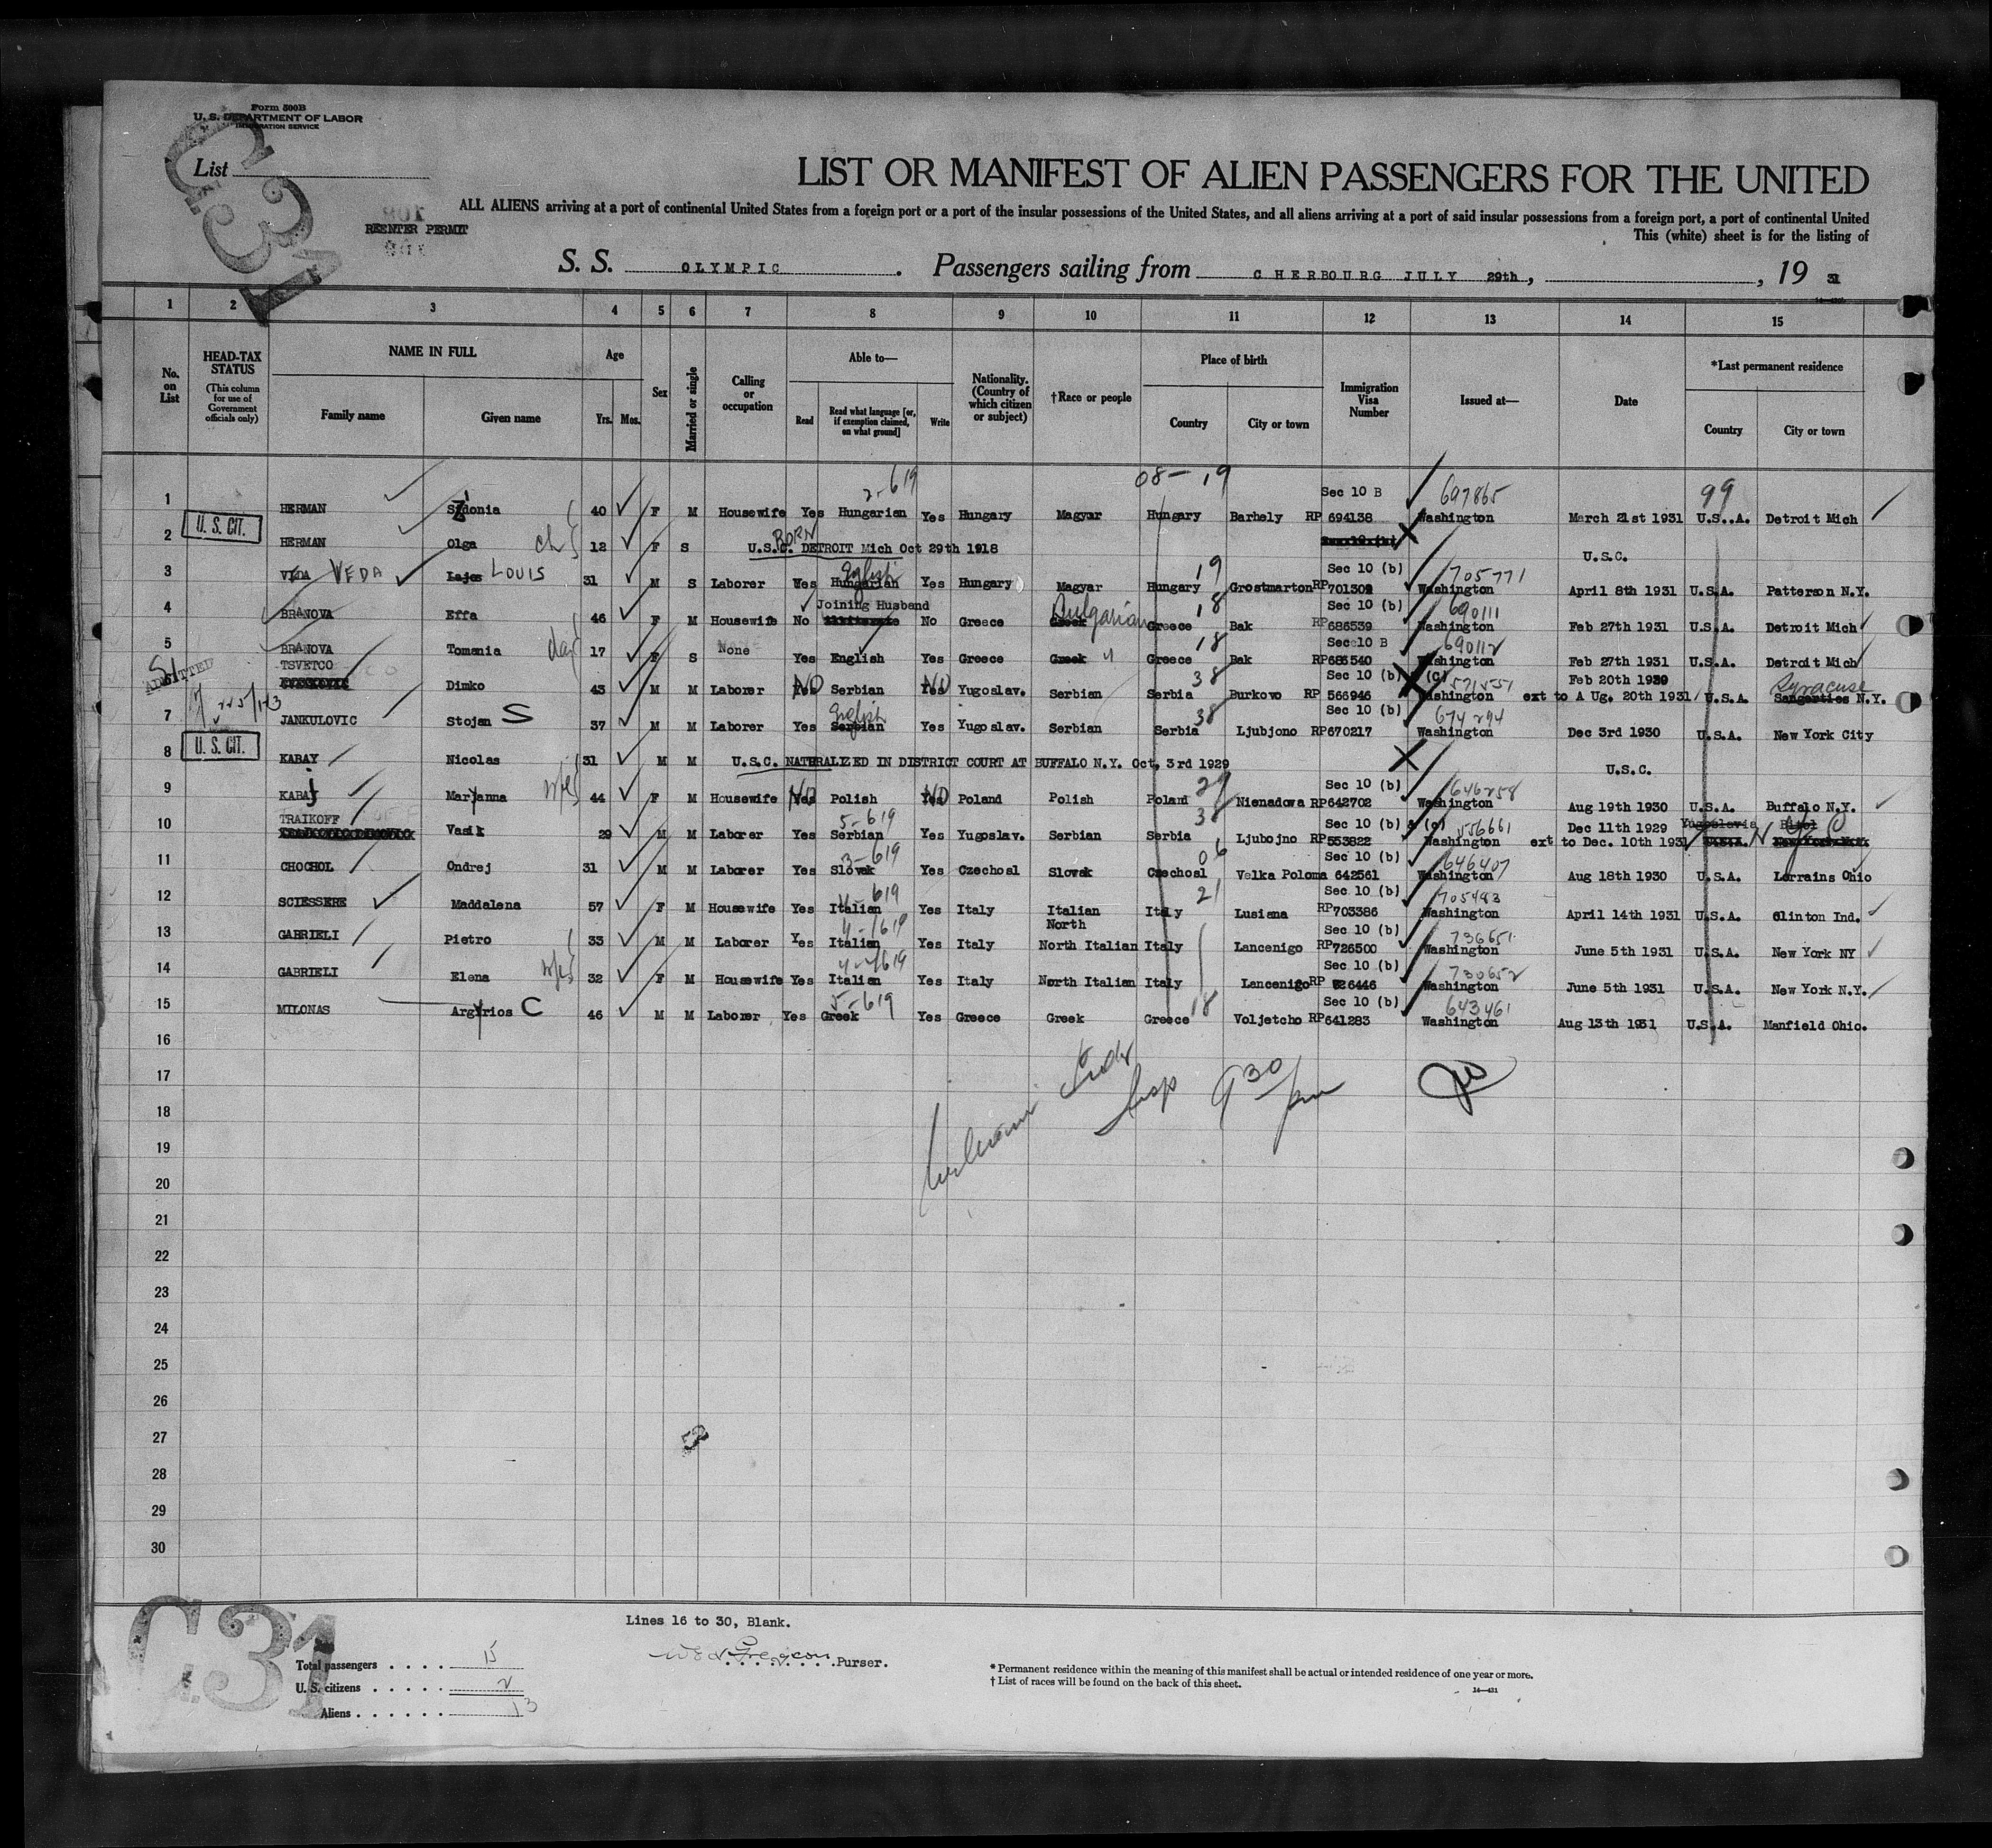 Form 500B
U. S. DEPARTMENT OF LABOR
IMMIGRATION SERVICE
List
C31
REENTER PERMIT
LIST OR MANIFEST OF ALIEN PASSENGERS FOR THE UNITED
ALL ALIENS arriving at a port of continental United States from a foreign port or a port of the insular possessions of the United States, and all aliens arriving at a port of said insular possessions from a foreign port, a port of continental United
This (white) sheet is for the listing of
S. S. OLYMPIC. Passengers sailing from CHERBOURG JULY 29th, , 19 31
1 2 3 4 5 6 7 8 9 10 11 12 13 14 15
No. on List
HEAD-TAX STATUS
(This column for use of Government officials only)
NAME IN FULL
Family name
Given name
Age
Yrs. Mos.
Sex
Married or single
Calling or occupation
Able to—
Read
Read what language [or, if exemption claimed, on what ground]
Write
Nationality. (Country of which citizen or subject)
†Race or people
Place of birth
Country
City or town
Immigration Visa Number
Issued at—
Date
*Last permanent residence
Country
City or town
2-619 08-19 Sec 10 B 697865 99
1 HERMAN Sidonia 40 F M Housewife Yes Hungarian Yes Hungary Magyar Hungary Barhely RP 694138 Washington March 21st 1931 U.S..A. Detroit Mich
U. S. CIT.
2 HERMAN Olga ch 12 F S U.S.C. BORN DETROIT Mich Oct 29th 1918 U.S.C.
19 Sec 10 (b) 705771
3 VIDA VEDA Lajos LOUIS 31 M S Laborer Yes Hungarian English Yes Hungary Magyar Hungary Grostmarton RP 701302 Washington April 8th 1931 U.S.A. Patterson N.Y.
Joining Husband Bulgarian 18 Sec 10 (b) 690111
4 BRANOVA Effa 46 F M Housewife No No Greece Greek Greece Bak RP 686539 Washington Feb 27th 1931 U.S.A. Detroit Mich
18 Sec 10 B 690112
5 BRANOVA Tomania dau 17 F S None Yes English Yes Greece Greek " Greece Bak RP 686540 Washington Feb 27th 1931 U.S.A. Detroit Mich
ADMITTED
SI
TSVETCO 38 Sec 10 (b) (c) 571551 Feb 20th 1930 Syracuse
6 Dimko 43 M M Laborer Yes NO Serbian Yes NO Yugoslav. Serbian Serbia Burkovo RP 566946 Washington ext to A Ug. 20th 1931 U.S.A. Saugerties N.Y.
English 38 Sec 10 (b) 674294
7 JANKULOVIC Stojan S 37 M M Laborer Yes Serbian Yes Yugoslav. Serbian Serbia Ljubjono RP 670217 Washington Dec 3rd 1930 U.S.A. New York City
U. S. CIT.
8 KABAY Nicolas 31 M M U.S.C. NATURALIZED IN DISTRICT COURT AT BUFFALO N.Y. Oct, 3rd 1929 U.S.C.
29 Sec 10 (b) 646258
9 KABAJ Maryanna wife 44 F M Housewife Yes NO Polish Yes NO Poland Polish Poland Nienadowa RP 642702 Washington Aug 19th 1930 U.S.A. Buffalo N.Y.
TRAIKOFF 5-619 38 Sec 10 (b) & (c) 556661 Dec 11th 1929 Yugoslavia Bitol
10 Vasil 29 M M Laborer Yes Serbian Yes Yugoslav. Serbian Serbia Ljubojno RP 553822 Washington ext to Dec. 10th 1931 U.S.A. New York N Y C
3-619 06 Sec 10 (b) 646407
11 CHOCHOL Ondrej 31 M M Laborer Yes Slovak Yes Czechosl Slovak Czechosl Velka Poloma 642561 Washington Aug 18th 1930 U.S.A. Lorrains Ohio
4-619 21 Sec 10 (b) 705483
12 SCIESSERE Maddalena 57 F M Housewife Yes Italian Yes Italy Italian North Italy Lusiana RP 703386 Washington April 14th 1931 U.S.A. Clinton Ind.
4-1619 Sec 10 (b) 736651
13 GABRIELI Pietro 33 M M Laborer Yes Italian Yes Italy North Italian Italy Lancenigo RP 726500 Washington June 5th 1931 U.S.A. New York NY
4-1619 Sec 10 (b) 730652
14 GABRIELI Elena wife 32 F M Housewife Yes Italian Yes Italy North Italian Italy Lancenigo RP 726446 Washington June 5th 1931 U.S.A. New York N.Y.
5-619 18 Sec 10 (b) 643461
15 MILONAS Argyrios C 46 M M Laborer Yes Greek Yes Greece Greek Greece Voljetcho RP 641283 Washington Aug 13th 1931 U.S.A. Manfield Ohio.
16
17
Insp 9 30 pm
18
19
20
21
22
23
24
25
26
27
28
29
30
C31
Lines 16 to 30, Blank.
Purser.
Total passengers . . . . 15
U. S. citizens . . . . . 2
Aliens . . . . . . 13
* Permanent residence within the meaning of this manifest shall be actual or intended residence of one year or more.
† List of races will be found on the back of this sheet.
14—431